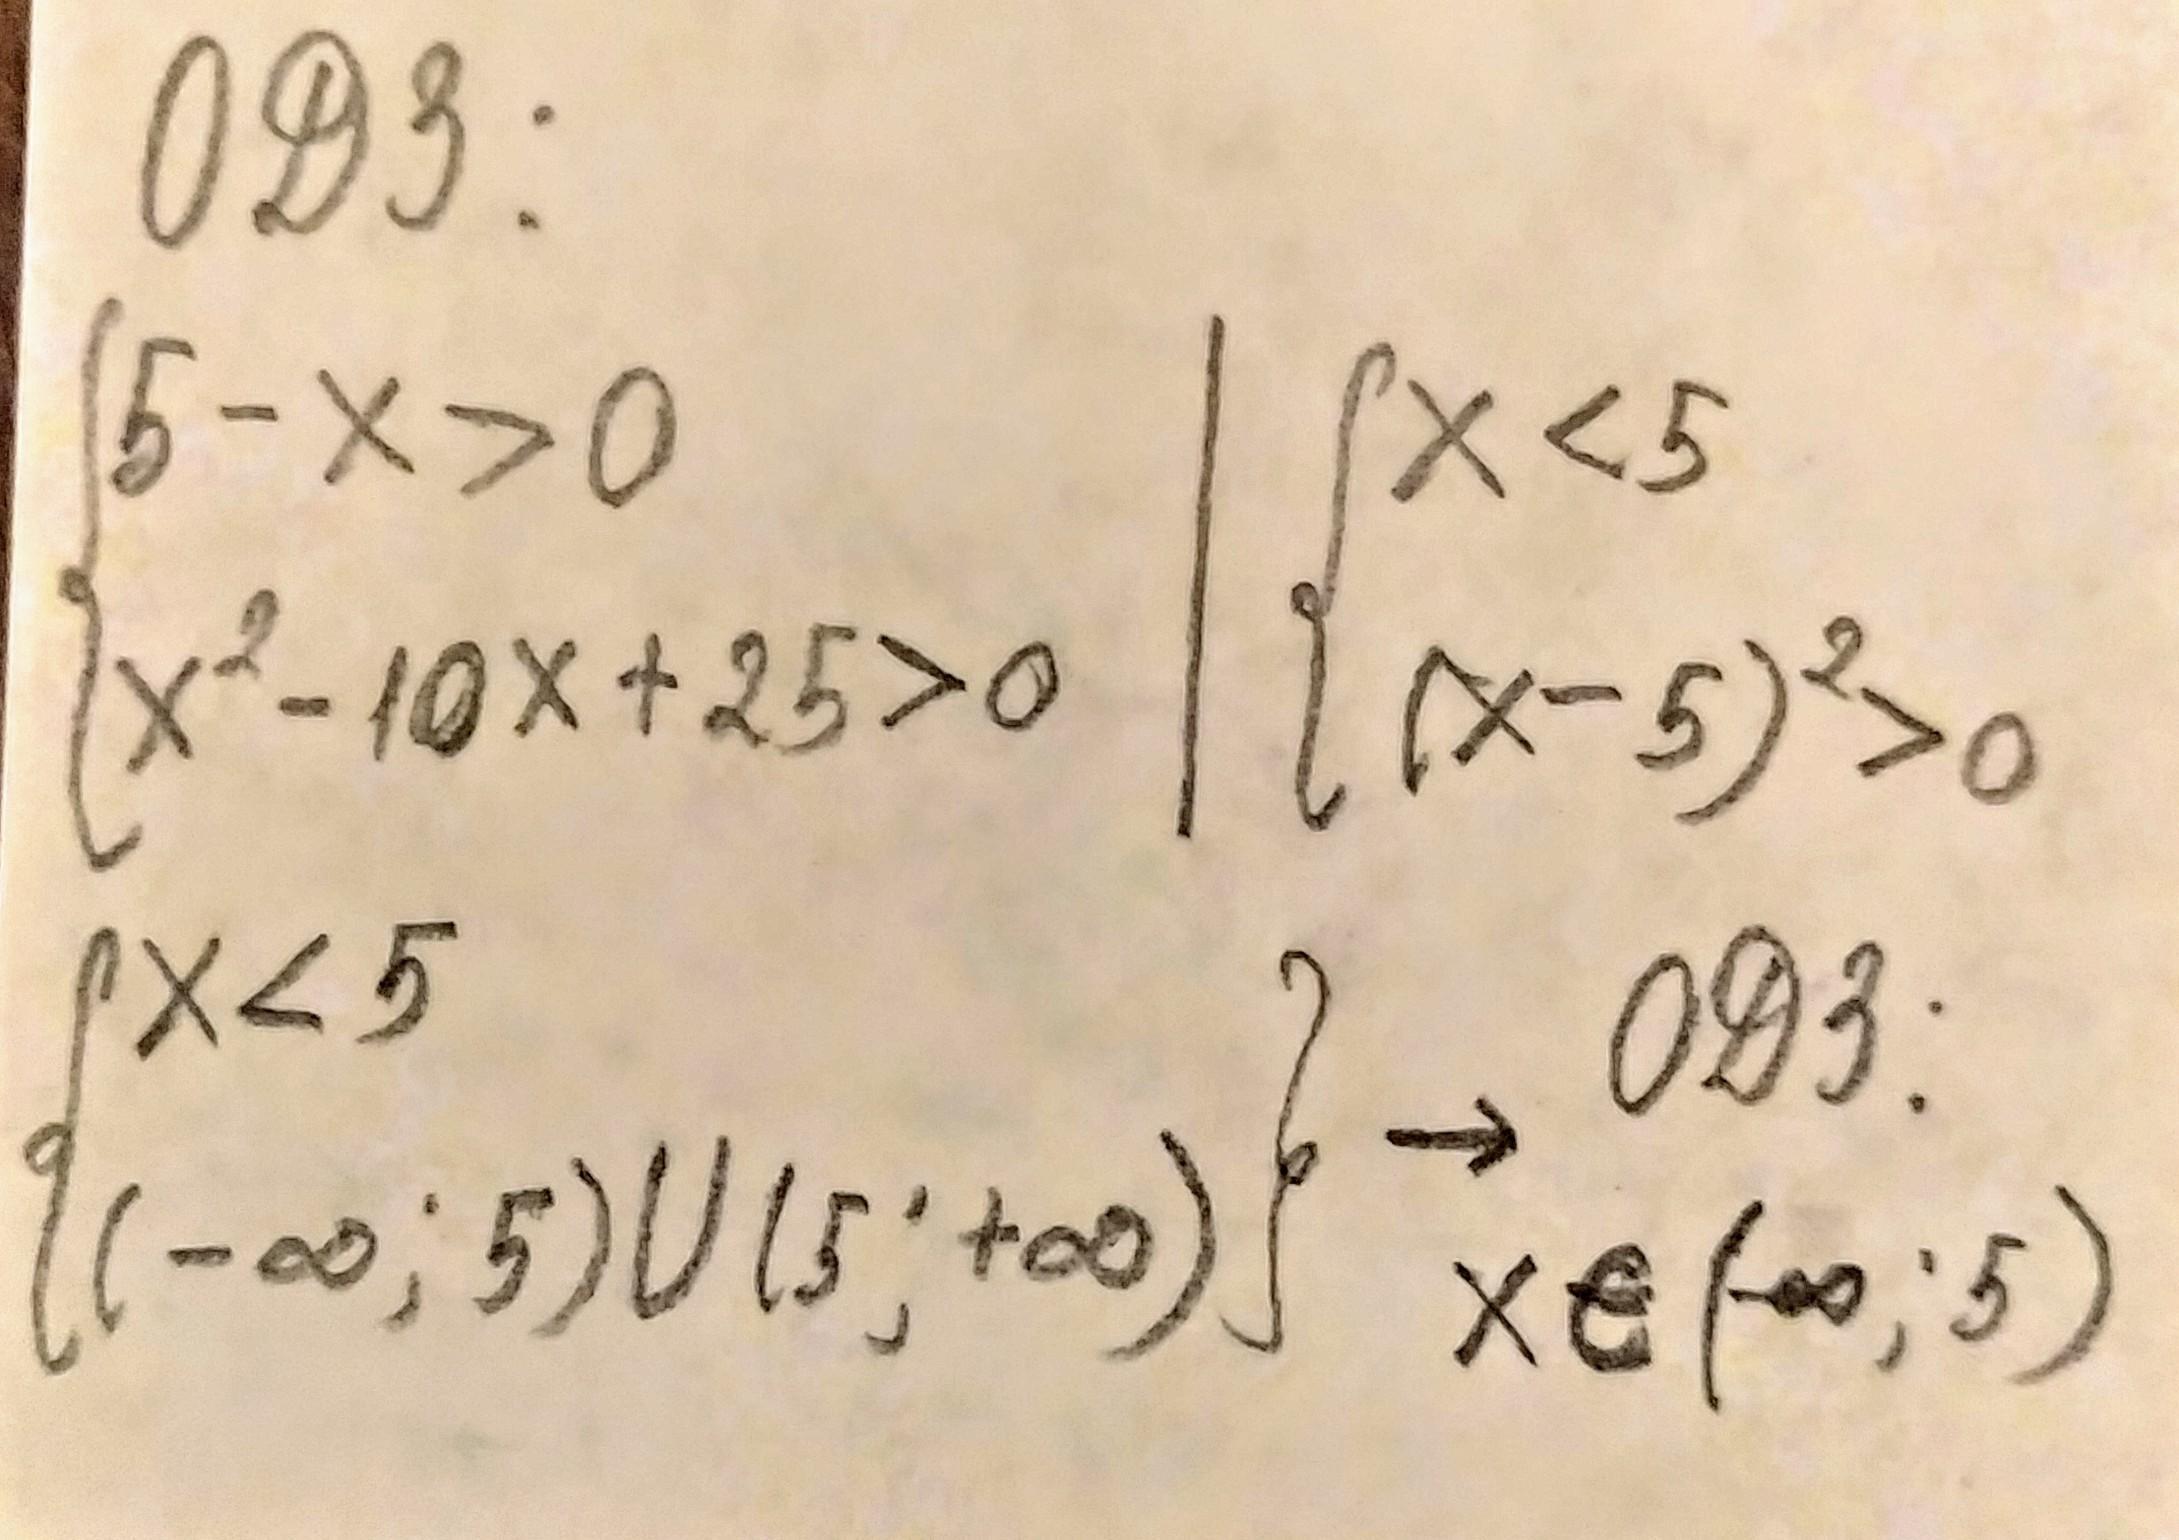 ОДЗ:
5 - x > 0
x² - 10x + 25 > 0
x < 5
(x - 5)² > 0
x < 5
(-∞; 5) ∪ (5; +∞)
→ ОДЗ:
x ∈ (-∞; 5)